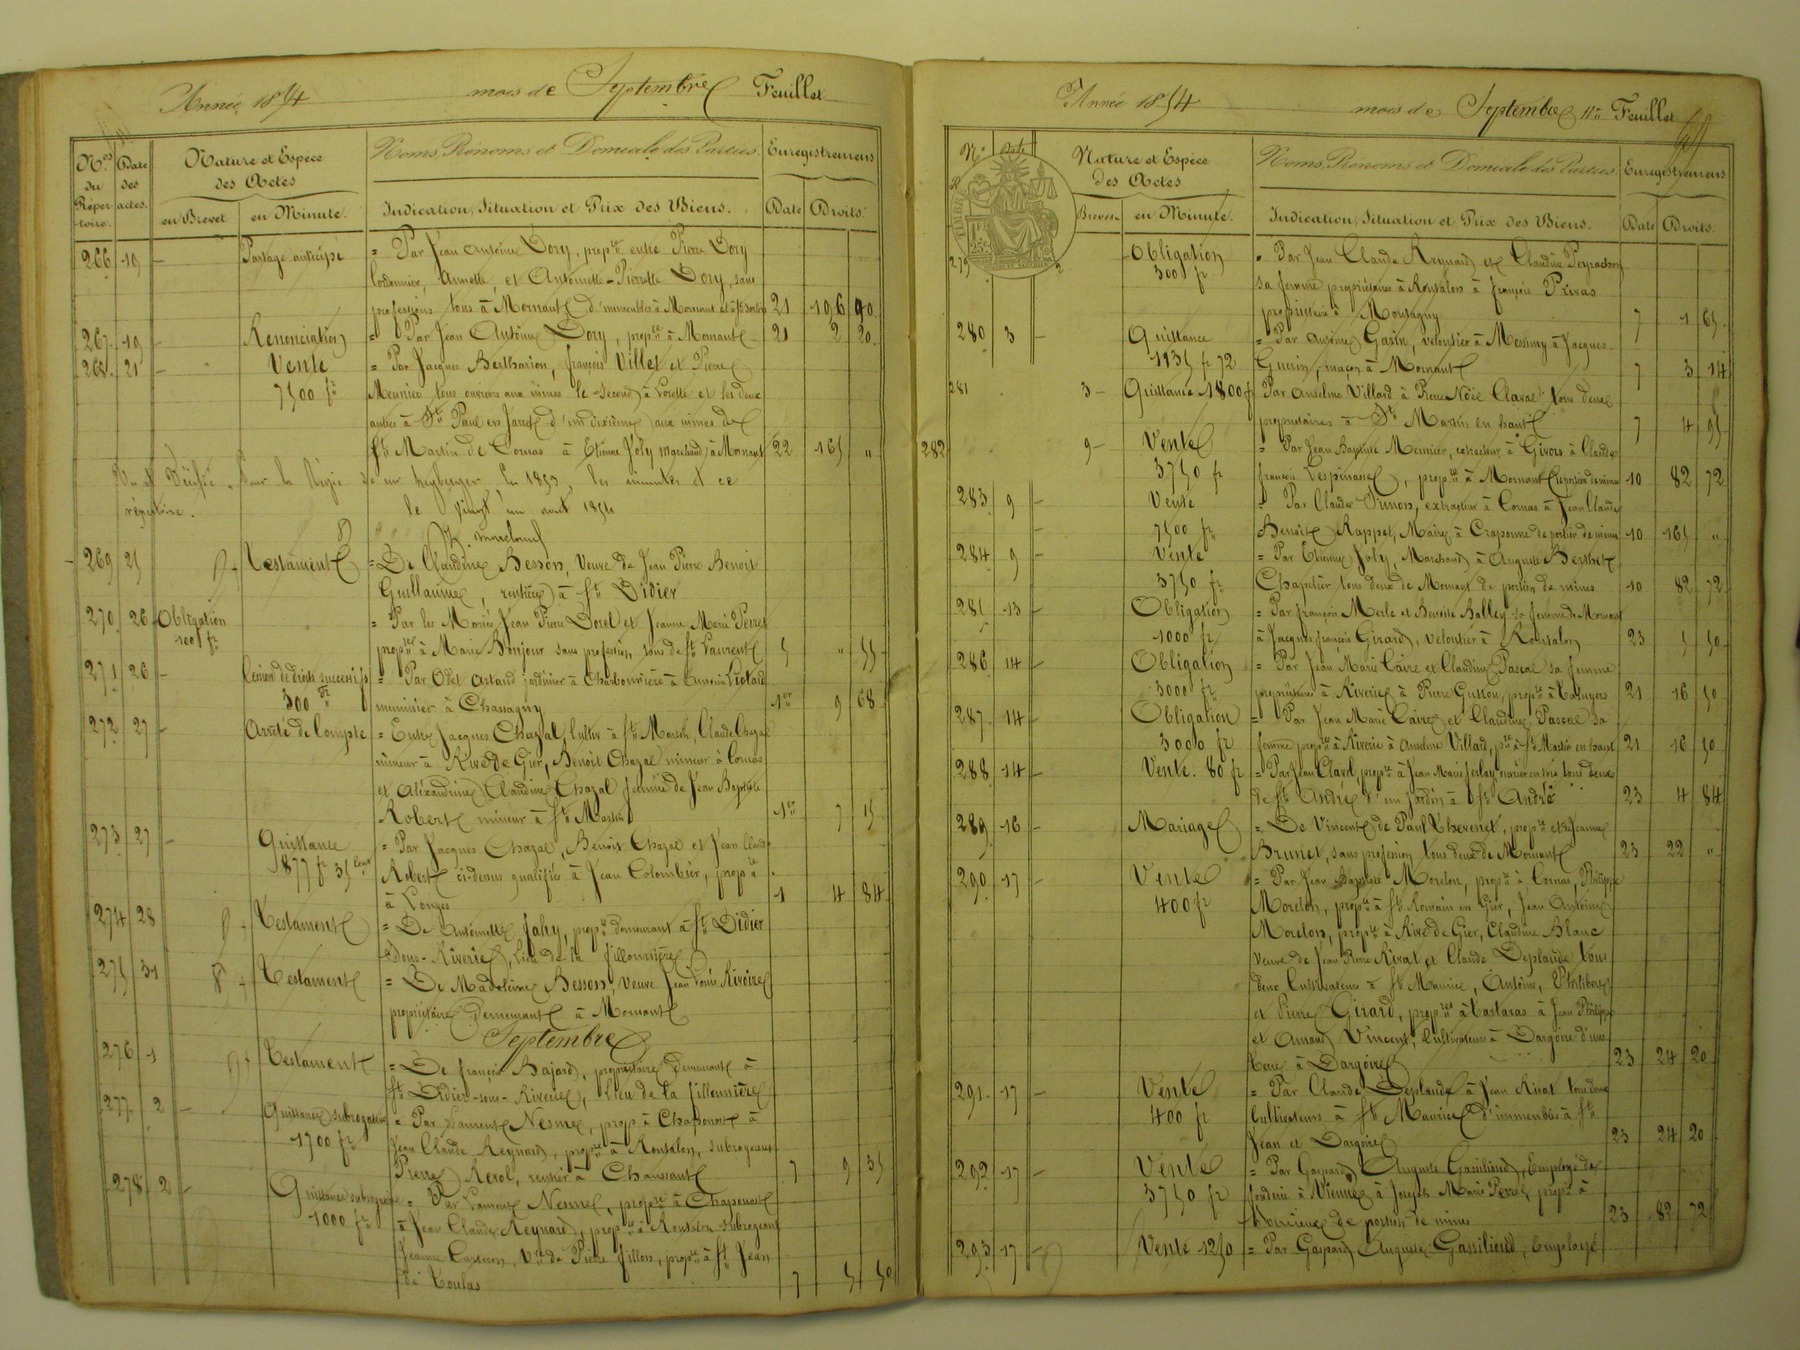 Année 1854 mois de Septembre Feuillet
Nos du Réper- toire.
Date des actes.
Nature et Espèce des Actes
en Brevet
en Minute.
Noms, Prénoms et Domicile des Parties.
Indication, Situation et Prix des Biens.
Enregistremens
Date
Droits.
266 19 — Partage anticipé = Par Jean Antoine Dory, propre entre Pierre Dory
cordonnier, Annette, et Antoinette-Pierrette Dory, sans
profession, tous à Mornant d'immeubles à Mornant et à St 21 196 90
267 19 — Renonciation = Par Jean Antoine Dory, propre à Mornant 21 2 20
268 21 — Vente = Par Jacques Bertharion, françois Villet et Pierre
7500 fr Meunier tous ouvriers aux mines le second à Lorette et les deux
autres à St Paul en Jarret d'un dixième aux mines de
St Martin de Cornas à Etienne Joly marchand à Mornant 22 165 "
Vu et Vérifié pour la Régie
répertoire. le vingt un août 1854
269 25 Testament = De Claudine Besson, Veuve de Jean Pierre Benoit
Guillaume, rentière à St Didier
270 26 Obligation = Par les Mariés Jean Pierre Dorel et Jeanne Marie
100 fr propres à Marie Bonjour sans profession tous de St Laurent 5 " 55
271 26 — Cession de droits successifs = Par Odet Astaud jardinier à Charbonnière à
300 fr meunier à Chassagny 1er 9 68
272 27 — Arrêté de Compte = Entre Jacques Chazal, cultivr à St Martin, Claude Chazal
mineur à Rive de Gier, Benoit Chazal mineur à Cornas
et Alexandrine Claudine Chazal femme de Jean Baptiste
Robert mineur à St Martin 1er 7 15
273 27 — Quittance = Par Jacques Chazal, Benoit Chazal et Jean Claude
877 fr 35 cent Robert ci-dessus qualifiés à Jean Colombier, propre
à Longes 1 4 84
274 28 Testament = De Antoinette Joly, propre demeurant à St Didier
sous-Riverie, lieu de la fillonnière
275 31 Testament = De Madeleine Besson, Veuve Jean Louis Rivoire
propriétaire demeurant à Mornant
Septembre
276 1 Testament = De françois Bajard, propriétaire demeurant à
St Didier-sous-Riverie, lieu de la fillonnière
277 2 — Quittance subrogative = Par Laurent Nesme, prop à Chaponost à
1700 fr Jean Claude Reynard, propre à Rontalon, subrogeant
Pierre rentier à Chaussan 7 9 35
278 2 — Quittance subrogative = Par Laurent Nesme, propre à Chaponost
1000 fr à Jean Claude Reynard, propre à Rontalon subrogeant
Jeanne Vve de Pierre fillon, propre à St Jean
de Toulas 7 5 50
Année 1854 mois de Septembre 11e Feuillet
No
Date
Nature et Espèce des Actes
Brevet
en Minute.
Noms, Prénoms et Domicile des Parties.
Indication, Situation et Prix des Biens.
Enregistremens
Date
Droits.
279 2 Obligation = Par Jean Claude Reynard et Claudine Peyrachon
300 fr sa femme propriétaires à Rontalon à françois Privas
propriétaire à Montagny 7 1 65
280 3 — Quittance = Par Antoine Gasin, veloutier à Messimy à Jacques
1135 fr 72 Guerin, maçon à Mornant 7 3 14
281 3 — Quittance 1800 fr Par Anselme Villard à Pierre Noël Claval tous deux
propriétaires à St Martin en haut 7 4 95
282 9 — Vente = Par Jean Baptiste Meunier, extracteur à Givors à Claude
3750 fr françois Lespinasse, propre à Mornant de portion de mines 10 82 72
283 9 — Vente = Par Claude extracteur à Cornas à Jean Claude
7500 fr Benoit Rappet, Maire à Craponne de portion de mines 10 165 "
284 9 — Vente = Par Etienne Joly, Marchand à Auguste Berthet
3750 fr Chapelier tous deux de Mornant de portion de mines 10 82 72
285 13 — Obligation = Par françois Merle et Benoite Balley sa femme de Mornant
1000 fr à Jacques françois Girard, veloutier à Rontalon 23 5 50
286 14 — Obligation = Par Jean Marie Caire et Claudine Pascal sa femme
3000 fr propriétaires à Riverie à Pierre Guyon, propre à Taluyers 21 16 50
287 14 — Obligation = Par Jean Marie Caire et Claudine Pascal sa
3000 fr femme propres à Riverie à Anselme Villard, pre à St Martin en haut 21 16 50
288 14 — Vente. 80 fr = Par Jean Clavel, propre à Jean Marie tous deux
de St André d'un jardin à St André 23 4 84
289 16 — Mariage = De Vincent de Paul Thevenet, propre et Jeanne
Brunet, sans profession tous deux de Mornant 23 22 "
290 17 — Vente = Par Jean Baptiste Morelon, propre à Cornas, Philippe
400 fr Morelon, propre à St Romain en Gier, Jean Antoine
Morelon, propre à Rive de Gier, Claudine Blanc
Veuve de Jean Pierre Rivat et Claude Desplaude tous
deux Cultivateurs à St Maurice, Antoine, Philibert
et Pierre Girard, propres à Tartaras à Jean Philippe
et Amand Vincent, Cultivateurs à Dargoire d'une
terre à Dargoire 23 24 20
291 17 — Vente = Par Claude Desplaude à Jean Rivat tous deux
400 fr Cultivateurs à St Maurice d'immeubles à St
Jean et Dargoire 23 24 20
292 17 — Vente = Par Gaspard Auguste Gassilloud, Employé de
3750 fr fonderie à Vienne à Joseph Marie propre à
de portion de mines 23 82 72
293 17 — Vente 1250 = Par Gaspard Auguste Gassilloud, Employé